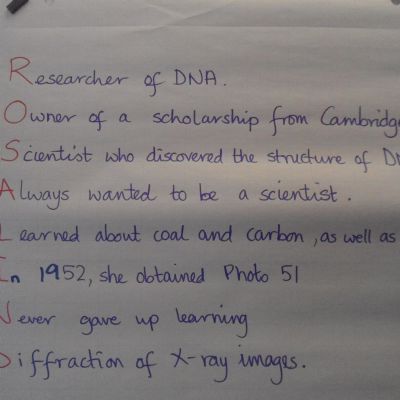 Researcher of DNA.
Owner of a scholarship from Cambridge
Scientist who discovered the structure of DN
Always wanted to be a scientist.
Learned about coal and carbon, as well as
In 1952, she obtained Photo 51
Never gave up learning
Diffraction of X-ray images.